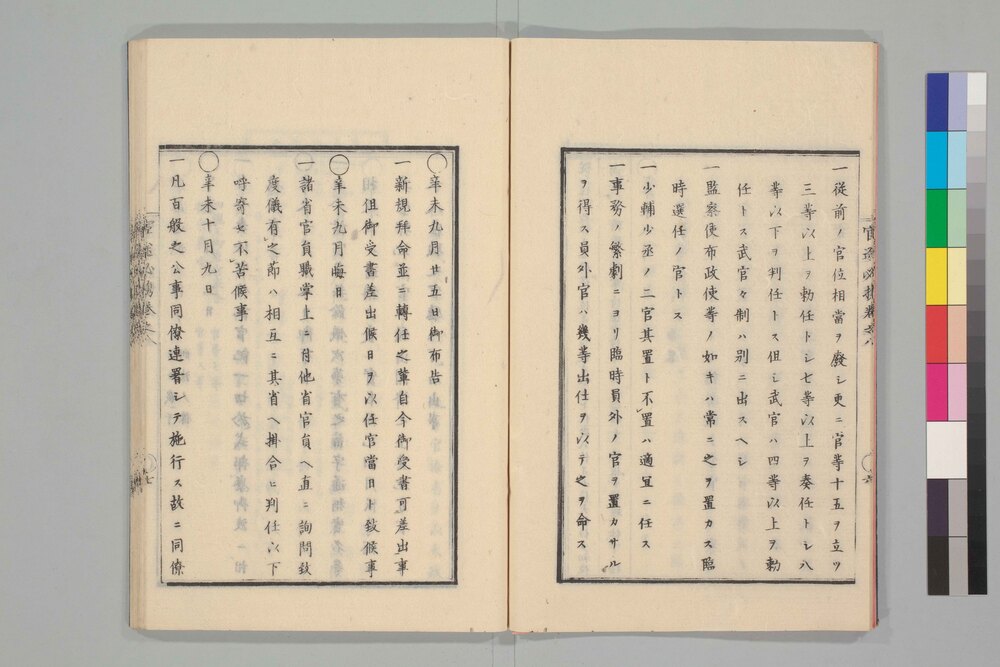 一從前ノ官位相當ヲ廢シ更ニ官等十五ヲ立ツ
三等以上ヲ勅任トシ七等以上ヲ奏任トシ八
等以下ヲ判任トス但シ武官ハ四等以上ヲ勅
任トス武官々制ハ別ニ出スヘシ
一監察使布政使等ノ如キハ常ニ之ヲ置カス臨
時選任ノ官トス
一少輔少丞ノ二官其置ト不置ハ適宜ニ任ス
一事務ノ繁劇ニヨリ臨時員外ノ官ヲ置カサル
ヲ得ス員外官ハ幾等出仕ヲ以テ之ヲ命ス
〇辛未九月廿五日御布告
一新規拜命並ニ轉任之輩自今御受書可差出事
但御受書差出候日ヲ以任官當日ト致候事
〇辛未九月晦日
一諸省官員職掌上ニ付他省官員ヘ直ニ詢問致
度儀有之節ハ相互ニ其省ヘ掛合ヒ判任以下
呼寄セ不苦候事
〇辛未十月九日
一凡百般之公事同僚連署シテ施行ス故ニ同僚